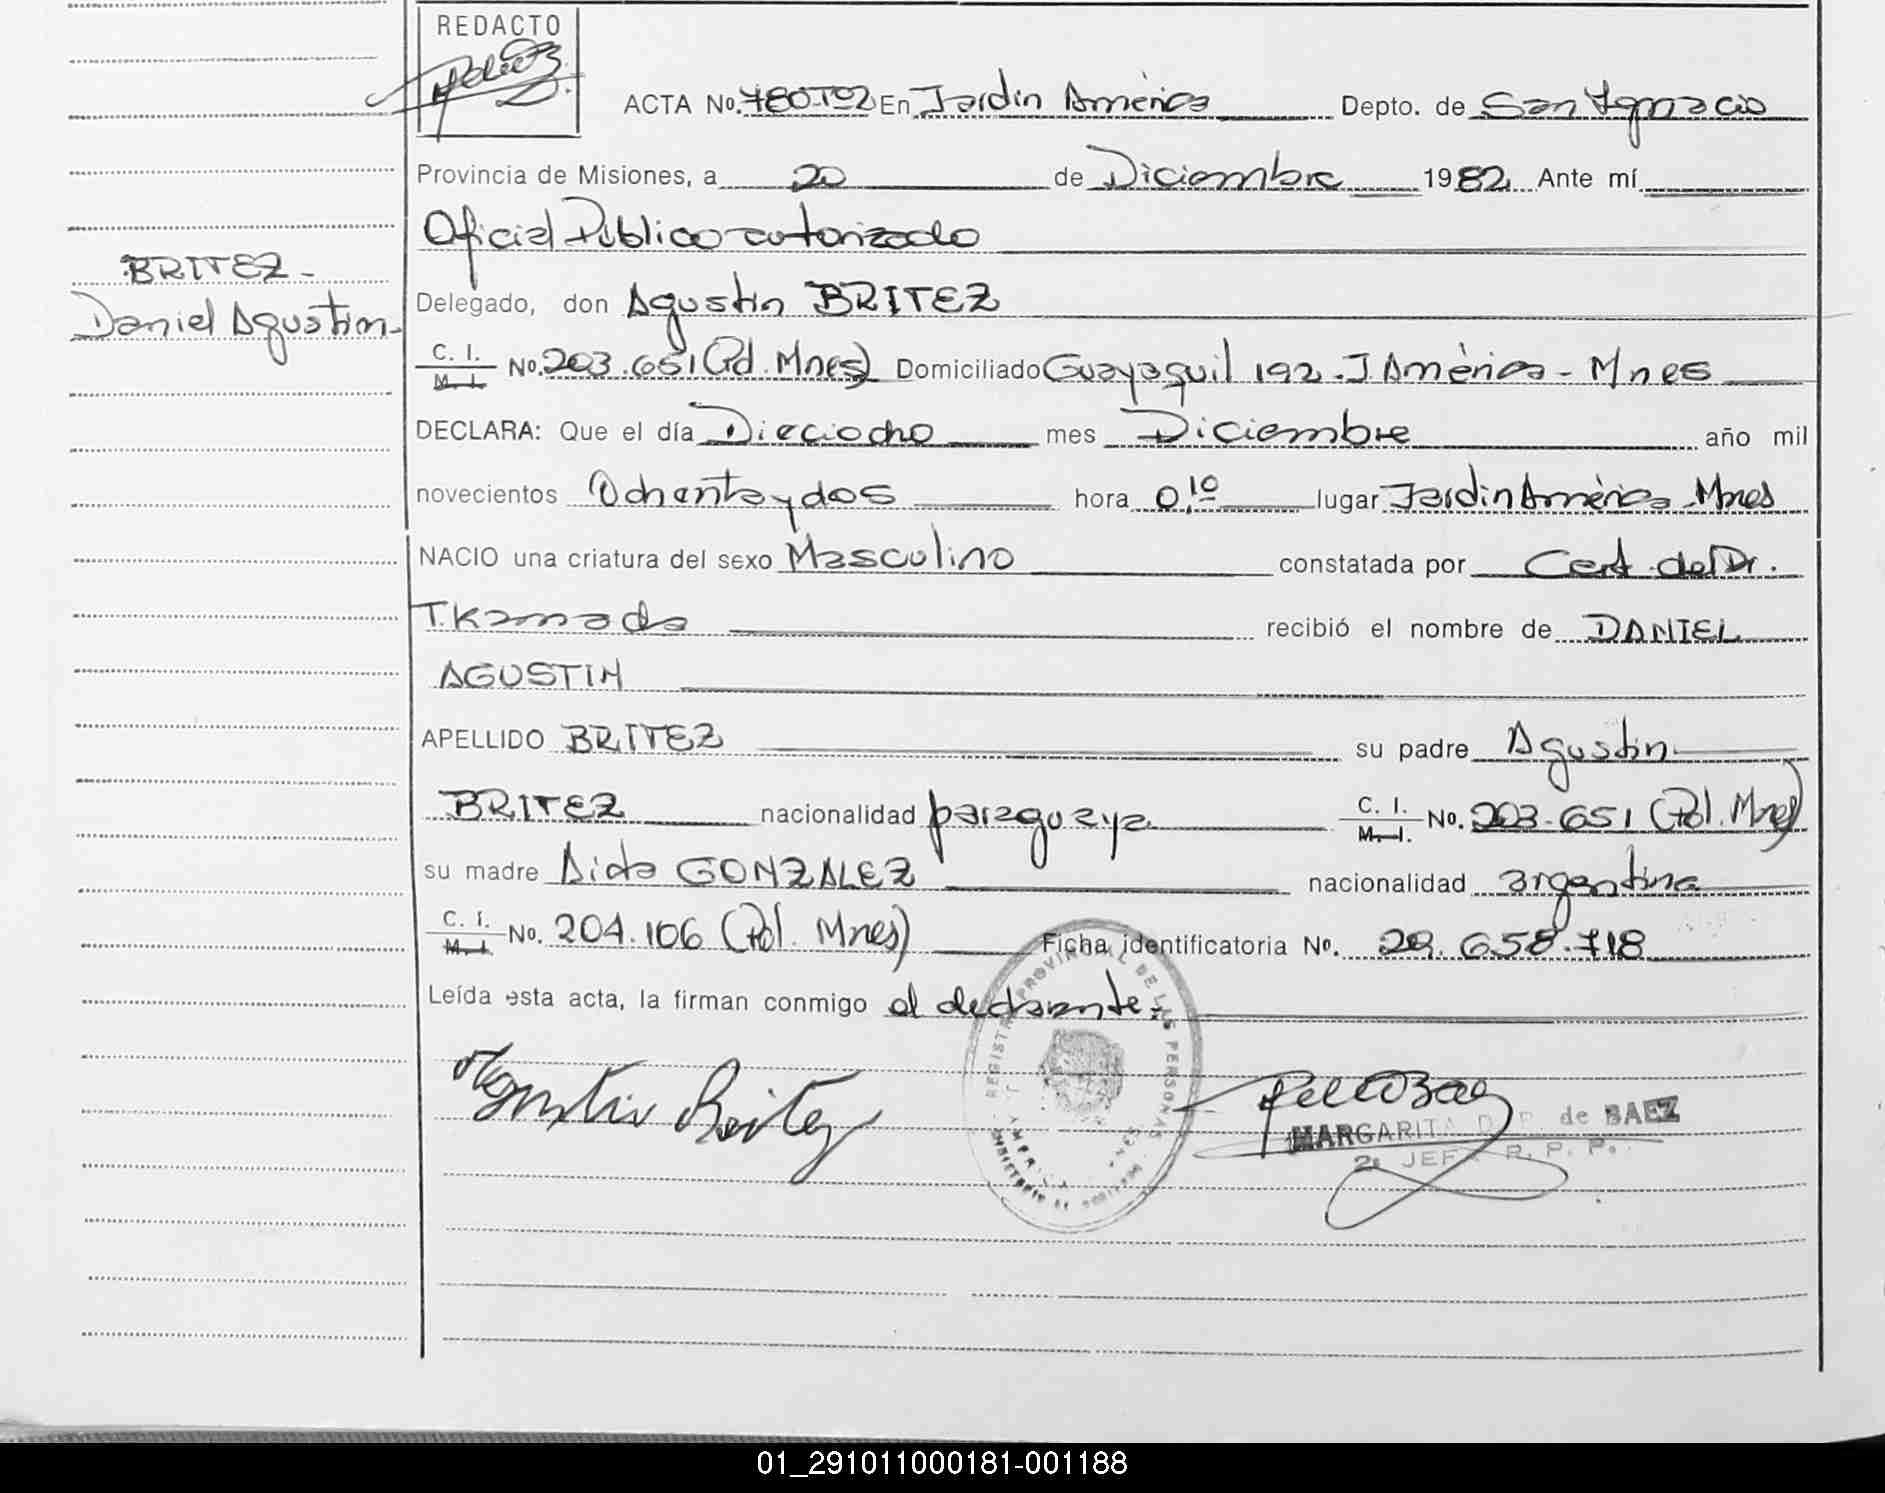 REDACTO
ACTA No. 780-T02 En Jardín América Depto. de San Ignacio
Provincia de Misiones, a 20 de Diciembre 1982 Ante mí
Oficial Público autorizado
BRITEZ-
Daniel Agustin-
Delegado, don Agustin BRITEZ
C. I. M. I. No. 203.651 (Pol. Mnes) Domiciliado Guayaquil 192. J América - Mnes
DECLARA: Que el día Dieciocho mes Diciembre año mil
novecientos Ochenta y dos hora 0,10 lugar Jardín América - Mnes
NACIO una criatura del sexo Masculino constatada por Cert. del Dr.
T. Kamada recibió el nombre de DANIEL
AGUSTIN
APELLIDO BRITEZ su padre Agustin
BRITEZ nacionalidad paraguaya C. I. M. I. No. 203.651 (Pol. Mnes)
su madre Aida GONZALEZ nacionalidad argentina
C. I. M. I. No. 204.106 (Pol. Mnes) Ficha identificatoria No. 29.658.718
Leída esta acta, la firman conmigo el declarante.
REGISTRO PROVINCIAL DE LAS PERSONAS
Agustin Britez
MARGARITA D. P. de BAEZ
2° JEFA R. P. P.
01_291011000181-001188